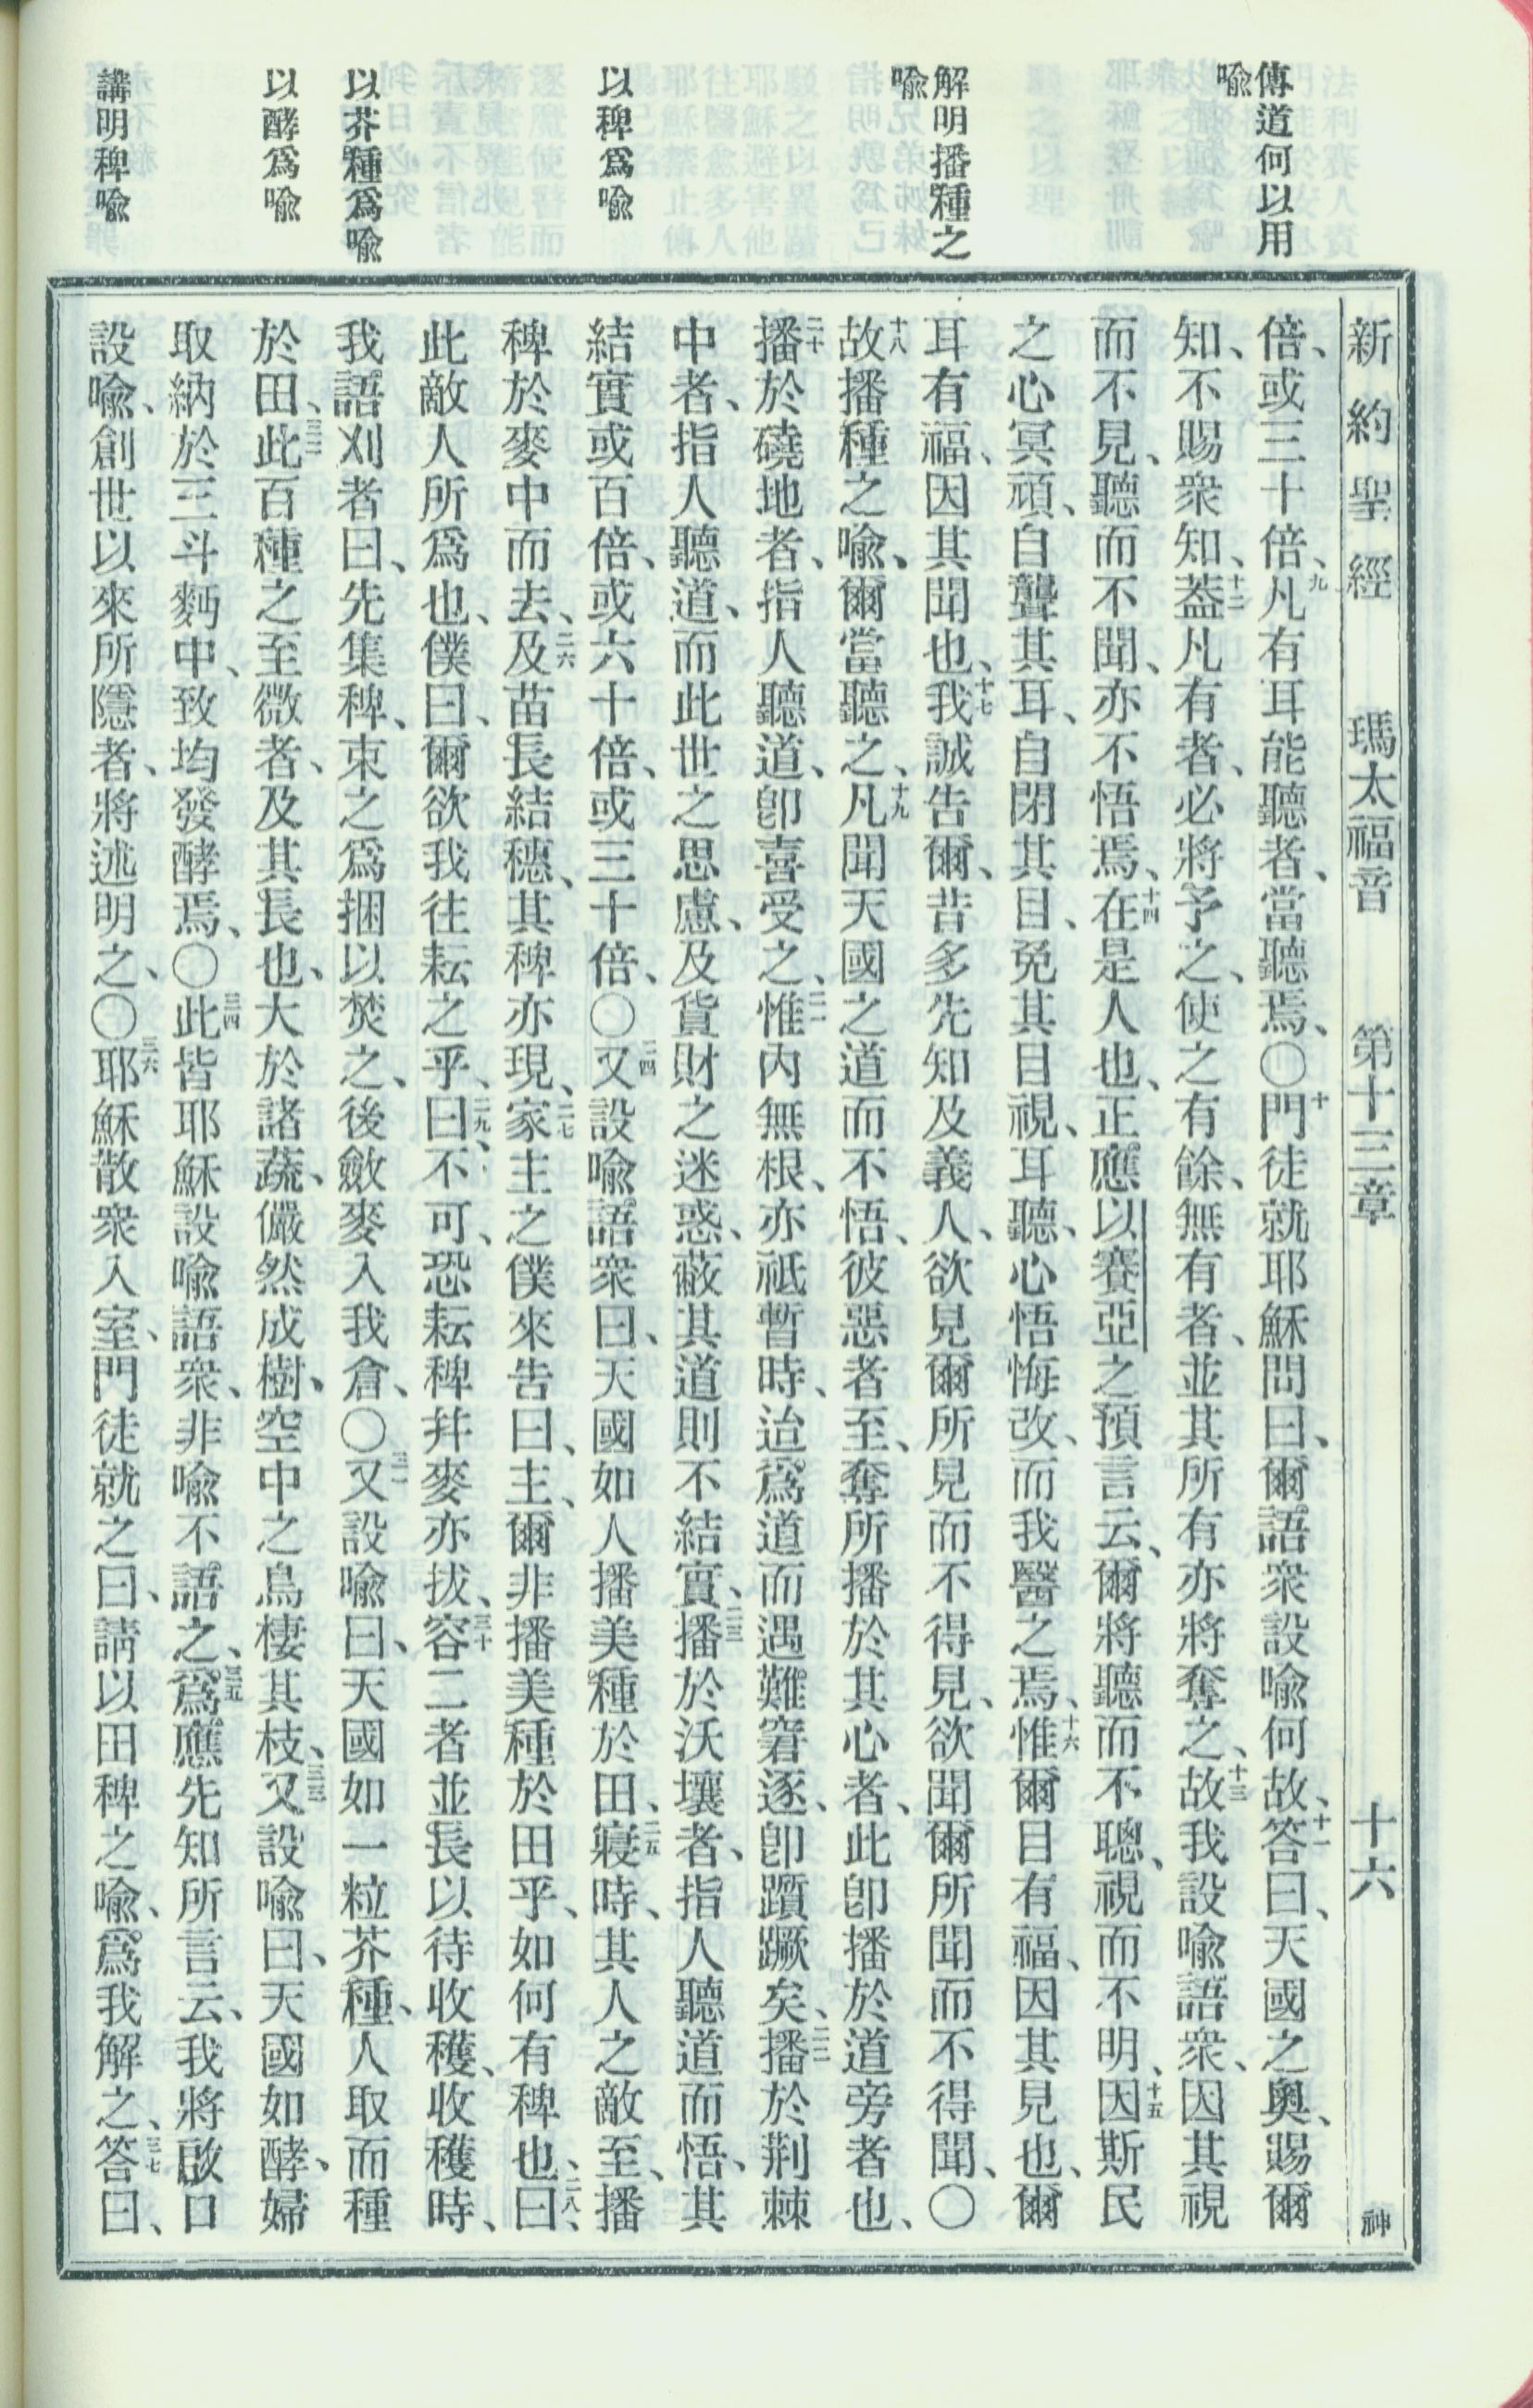 新約聖經 瑪太福音 第十三章 十六 神
傳道何以用
喩
解明播種之
喩
以稗爲喩
以芥種爲喩
以酵爲喩
講明稗喩
倍、或三十倍、九凡有耳能聽者、當聽焉、〇十門徒就耶穌問曰、爾語衆設喩何故、十一答曰、天國之奧、賜爾
知、不賜衆知、十二蓋凡有者、必將予之、使之有餘、無有者、並其所有亦將奪之、十三故我設喩語衆、因其視
而不見、聽而不聞、亦不悟焉、十四在是人也、正應以賽亞之預言云、爾將聽而不聰、視而不明、十五因斯民
之心冥頑、自聾其耳、自閉其目、免其目視、耳聽、心悟悔改、而我醫之焉、十六惟爾目有福、因其見也、爾
耳有福、因其聞也、十七我誠告爾、昔多先知及義人、欲見爾所見而不得見、欲聞爾所聞而不得聞、〇
十八故播種之喩、爾當聽之、十九凡聞天國之道而不悟、彼惡者至、奪所播於其心者、此卽播於道旁者也、
二十播於磽地者、指人聽道、卽喜受之、二一惟內無根、亦祗暫時、迨爲道而遇難窘逐、卽躓蹶矣、二二播於荆棘
中者、指人聽道、而此世之思慮、及貨財之迷惑、蔽其道則不結實、二三播於沃壤者、指人聽道而悟、其
結實或百倍、或六十倍、或三十倍、〇二四又設喩語衆曰、天國如人播美種於田、二五寢時、其人之敵至、播
稗於麥中而去、二六及苗長結穗、其稗亦現、二七家主之僕來告曰、主、爾非播美種於田乎、如何有稗也、二八曰、
此敵人所爲也、僕曰、爾欲我往耘之乎、二九曰、不可、恐耘稗幷麥亦拔、三十容二者並長以待收穫、收穫時、
我語刈者曰、先集稗、束之爲捆以焚之、後斂麥入我倉、〇三一又設喩曰、天國如一粒芥種、人取而種
於田、三二此百種之至微者、及其長也、大於諸蔬、儼然成樹、空中之鳥棲其枝、三三又設喩曰、天國如酵、婦
取納於三斗麪中、致均發酵焉、〇三四此皆耶穌設喩語衆、非喩不語之、三五爲應先知所言云、我將啟口
設喩、創世以來所隱者、將述明之、〇三六耶穌散衆入室、門徒就之曰、請以田稗之喩、爲我解之、三七答曰、